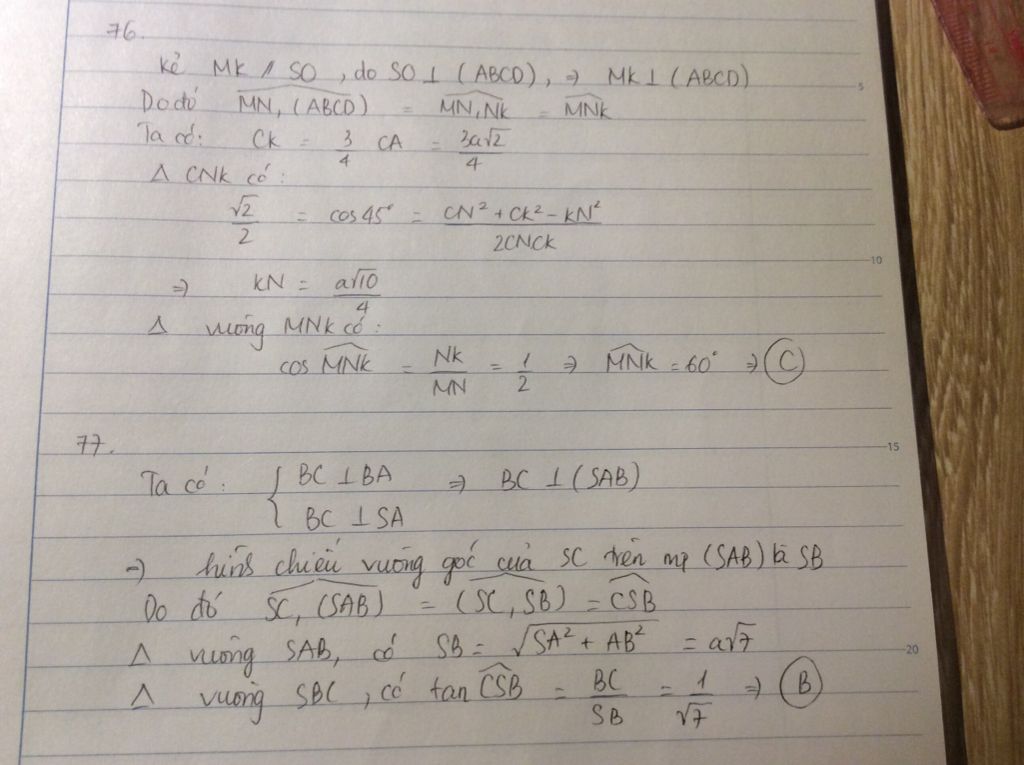 76.
Kẻ MK // SO, do SO ⊥ (ABCD), ⇒ MK ⊥ (ABCD)
5
Do đó \widehat{MN, (ABCD)} = \widehat{MN, NK} = \widehat{MNK}
Ta có: CK = \frac{3}{4} CA = \frac{3a\sqrt{2}}{4}
Δ CNK có:
\frac{\sqrt{2}}{2} = cos 45° = \frac{CN² + CK² - KN²}{2CNCK}
10
⇒ KN = \frac{a\sqrt{10}}{4}
Δ vuông MNK có:
cos \widehat{MNK} = \frac{NK}{MN} = \frac{1}{2} ⇒ \widehat{MNK} = 60° ⇒ C
77.
15
Ta có: { BC ⊥ BA ⇒ BC ⊥ (SAB)
BC ⊥ SA
⇒ hình chiếu vuông góc của SC trên mp (SAB) là SB
Do đó \widehat{SC, (SAB)} = \widehat{(SC, SB)} = \widehat{CSB}
Δ vuông SAB, có SB = \sqrt{SA² + AB²} = a\sqrt{7}
20
Δ vuông SBC, có tan \widehat{CSB} = \frac{BC}{SB} = \frac{1}{\sqrt{7}} ⇒ B